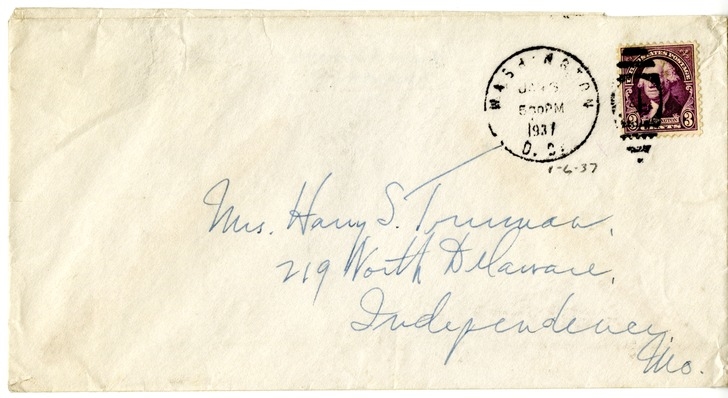 WASHINGTON
JAN 6
5 30 PM
1937
D. C.
UNITED STATES POSTAGE
3 CENTS 3
1-6-37
Mrs. Harry S. Truman,
219 North Delaware,
Independence,
Mo.